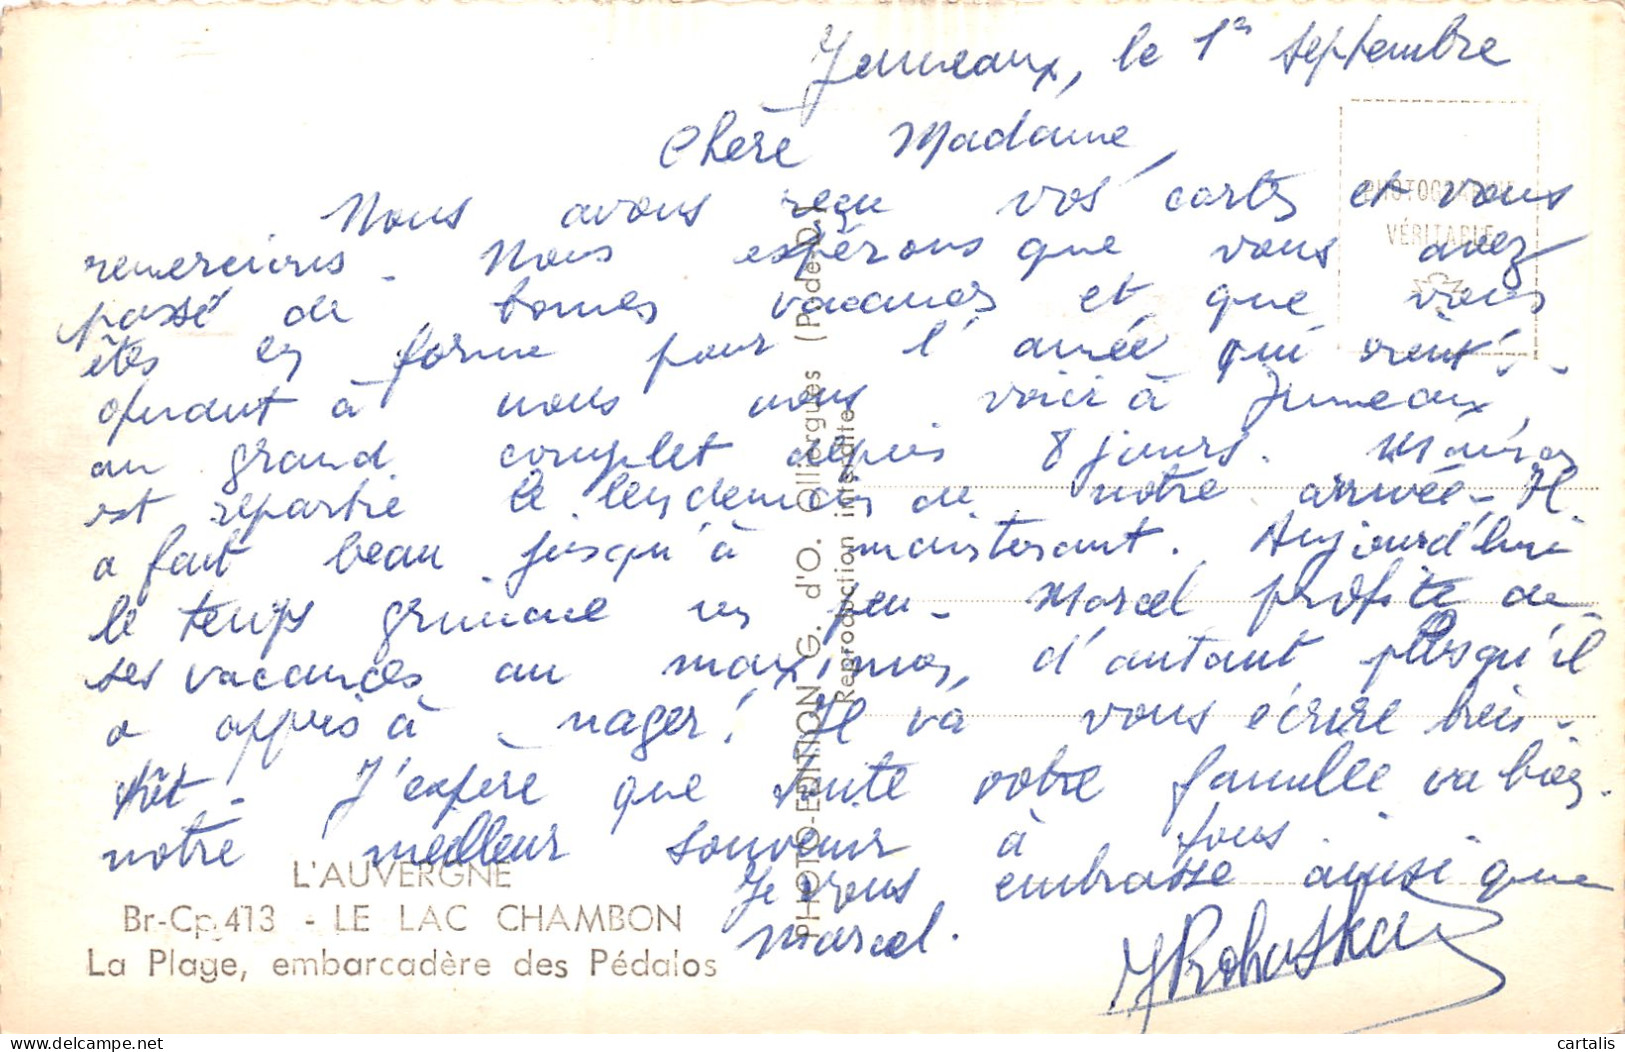 Jumeaux, le 1er septembre
Chère Madame,
Nous avons reçu vos cartes et vous
remercions. Nous espérons que vous avez
passé de bonnes vacances et que vous
êtes en forme pour l'année qui vient! -
quant à nous nous voici à Jumeaux,
au grand complet depuis 8 jours.
est repartie le lendemain de notre arrivée. Il
a fait beau jusqu'à maintenant. Aujourd'hui
le temps grimace un peu. Marcel profite de
ses vacances au maximum, d'autant plus qu'il
a appris à nager! Il va vous écrire bien-
tôt. J'espère que toute votre famille va bien.
notre meilleur souvenir à tous.
Je vous embrasse ainsi que
Marcel.
PHOTOGRAPHIE
VÉRITABLE
L'AUVERGNE
Br-Cp.413 - LE LAC CHAMBON
La Plage, embarcadère des Pédalos
PHOTO-EDITION G. d'O. Olliergues (P.-de-D.)
Reproduction interdite
cartalis